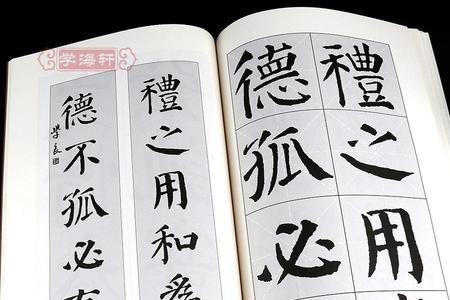 学海轩
禮之用和爲
德不孤必有
學良
禮之用
德孤必